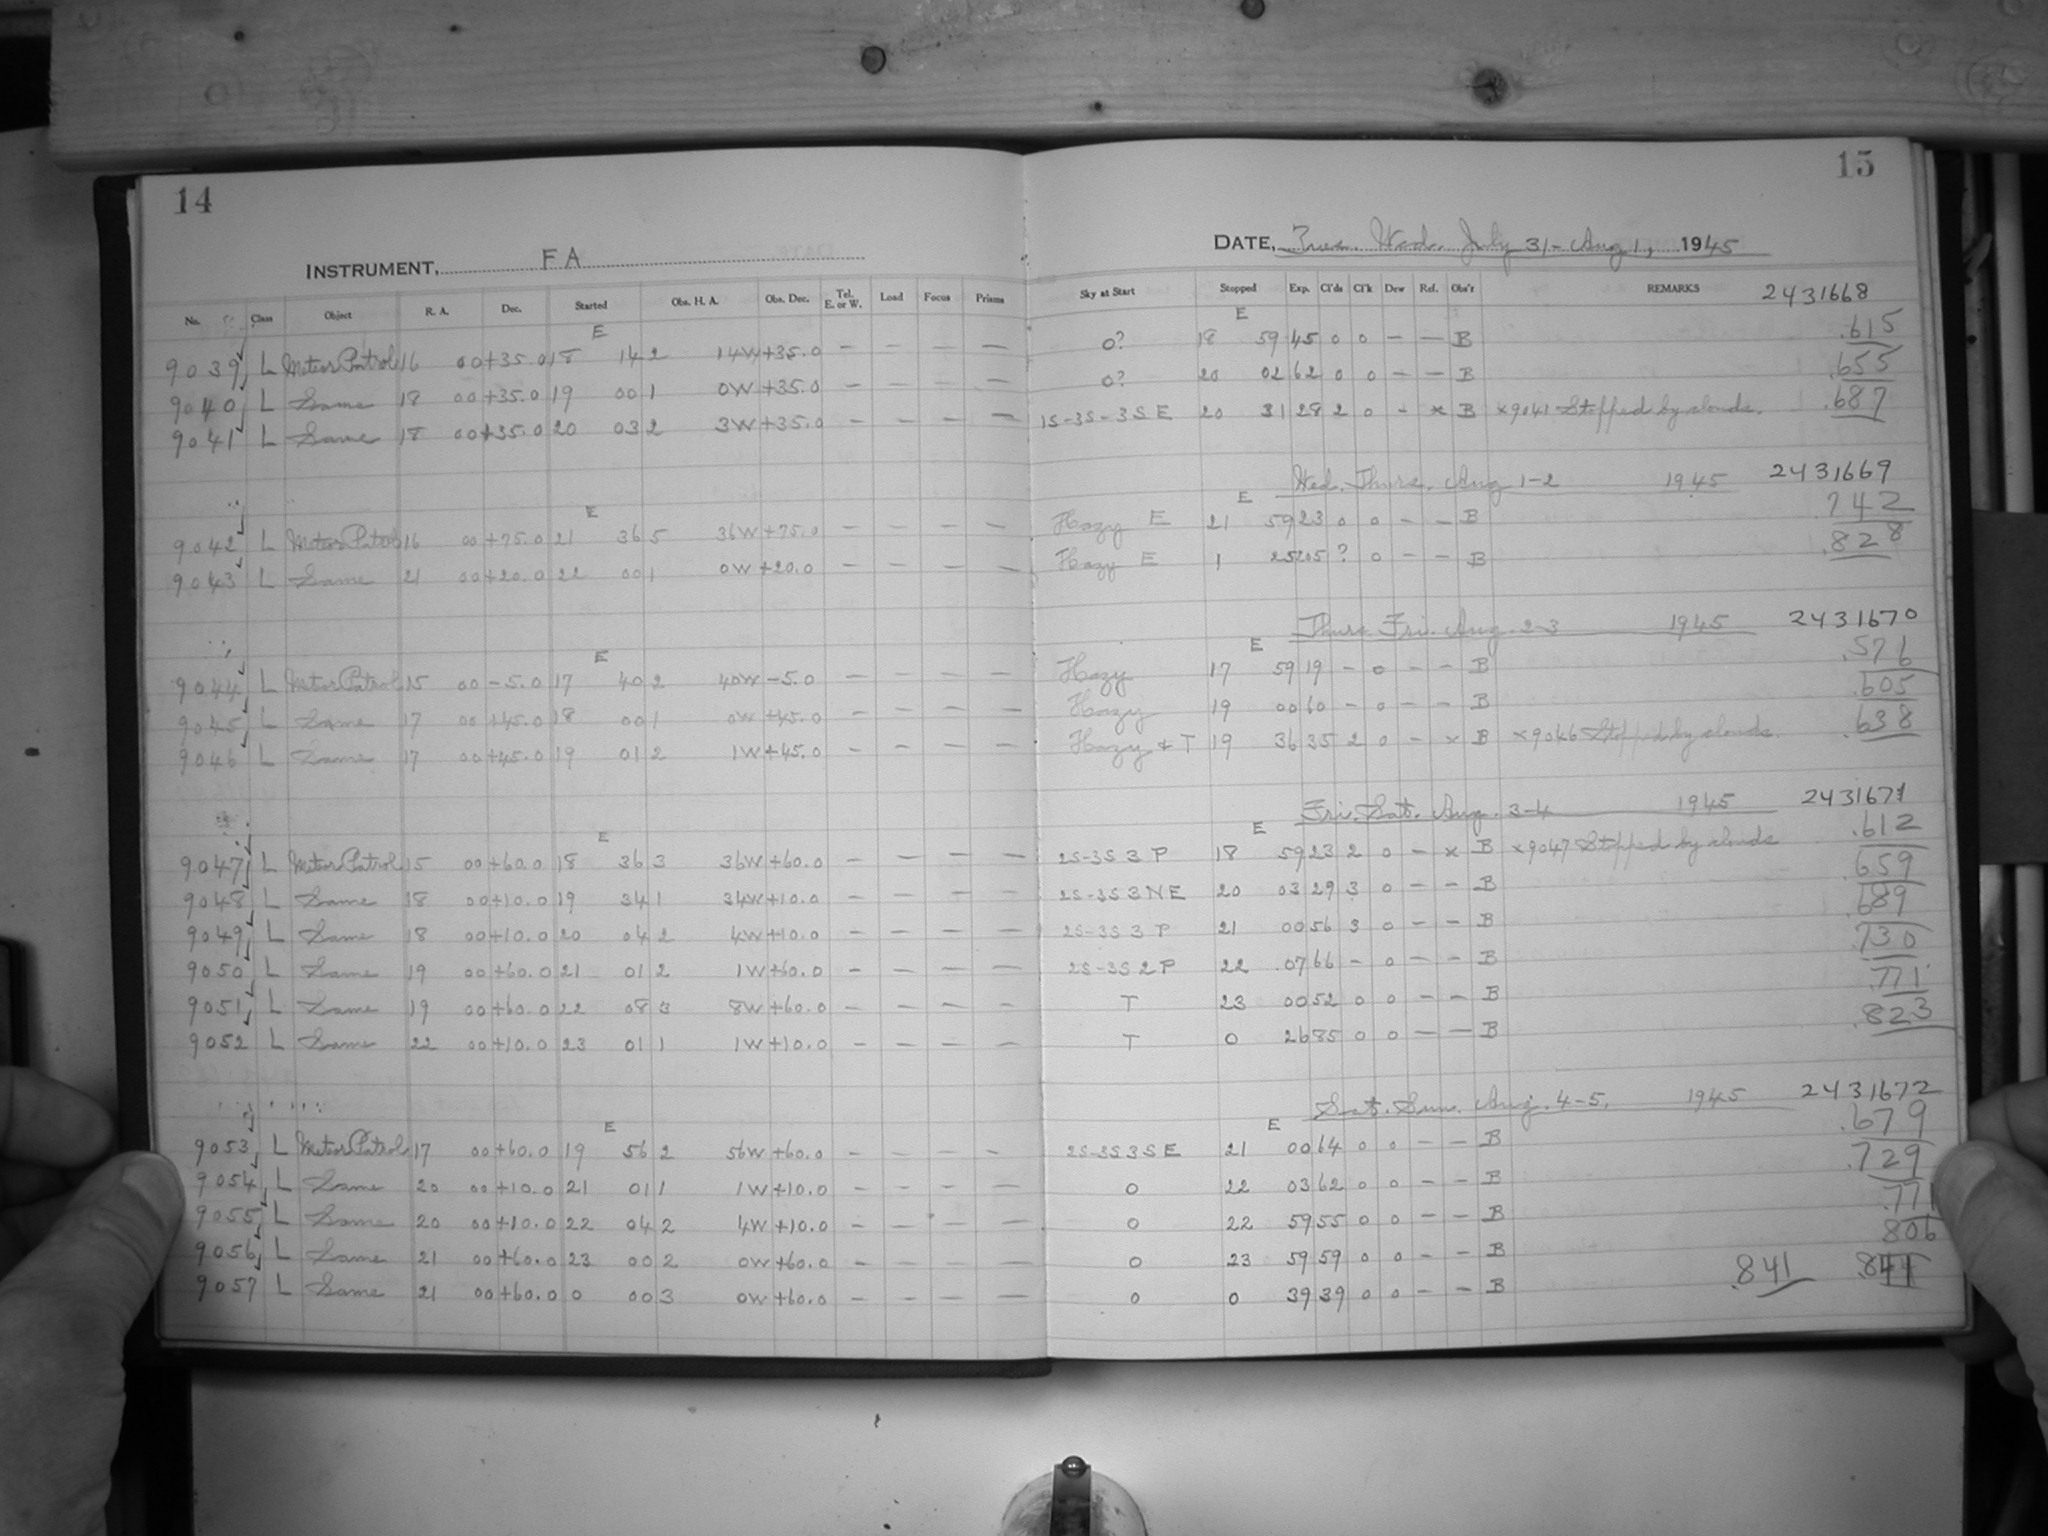 14
INSTRUMENT, FA
No. Class Object R. A. Dec. Started Obs. H. A. Obs. Dec. Tel. E. or W. Load Focus Prisms
E
9039 L Meteor Patrol 16 00 +35.0 18 14 2 14W +35.0 — — — —
9040 L Same 18 00 +35.0 19 00 1 0W +35.0 — — — —
9041 L Same 18 00 +35.0 20 03 2 3W +35.0 — — — —
E
9042 L Meteor Patrol 16 00 +75.0 21 36 5 36W +75.0 — — — —
9043 L Same 21 00 +20.0 22 00 1 0W +20.0 — — — —
E
9044 L Meteor Patrol 15 00 -5.0 17 40 2 40W -5.0 — — — —
9045 L Same 17 00 +45.0 18 00 1 0W +45.0 — — — —
9046 L Same 17 00 +45.0 19 01 2 1W +45.0 — — — —
E
9047 L Meteor Patrol 15 00 +60.0 18 36 3 36W +60.0 — — — —
9048 L Same 18 00 +10.0 19 34 1 34W +10.0 — — — —
9049 L Same 18 00 +10.0 20 04 2 4W +10.0 — — — —
9050 L Same 19 00 +60.0 21 01 2 1W +60.0 — — — —
9051 L Same 19 00 +60.0 22 08 3 8W +60.0 — — — —
9052 L Same 22 00 +10.0 23 01 1 1W +10.0 — — — —
E
9053 L Meteor Patrol 17 00 +60.0 19 56 2 56W +60.0 — — — —
9054 L Same 20 00 +10.0 21 01 1 1W +10.0 — — — —
9055 L Same 20 00 +10.0 22 04 2 4W +10.0 — — — —
9056 L Same 21 00 +60.0 23 00 2 0W +60.0 — — — —
9057 L Same 21 00 +60.0 0 00 3 0W +60.0 — — — —
15
DATE, Tues. Wed. July 31 - Aug 1, 1945
Sky at Start Stopped Exp. Cl'ds Cl'k Dew Ref. Obs'r REMARKS 2431668
E
0? 18 59 45 0 0 — — B .615
0? 20 02 62 0 0 — — B .655
1S-3S-3SE 20 31 28 2 0 - x B x9041 Stopped by clouds. .687
Wed. Thurs. Aug 1-2 1945 2431669
E
Hazy E 21 59 23 0 0 — — B .742
Hazy E 1 25 205 ? 0 — — B .828
Thurs. Fri. Aug. 2-3 1945 2431670
E
Hazy 17 59 19 — 0 — — B .576
Hazy 19 00 60 — 0 — — B .605
Hazy & T 19 36 35 2 0 — x B x9046 Stopped by clouds. .638
Fri. Sat. Aug. 3-4 1945 2431671
E
2S-3S 3 P 18 59 23 2 0 — x B x9047 Stopped by clouds .612
2S-3S 3 NE 20 03 29 3 0 — — B .659
2S-3S 3 P 21 00 56 3 0 — — B .689
2S-3S 2 P 22 07 66 — 0 — — B .730
T 23 00 52 0 0 — — B .771
T 0 26 85 0 0 — — B .823
Sat. Sun. Aug. 4-5. 1945 2431672
E
2S-3S 3 SE 21 00 64 0 0 — — B .679
0 22 03 62 0 0 — — B .729
0 22 59 55 0 0 — — B .771
0 23 59 59 0 0 — — B 806
0 0 39 39 0 0 — — B .841